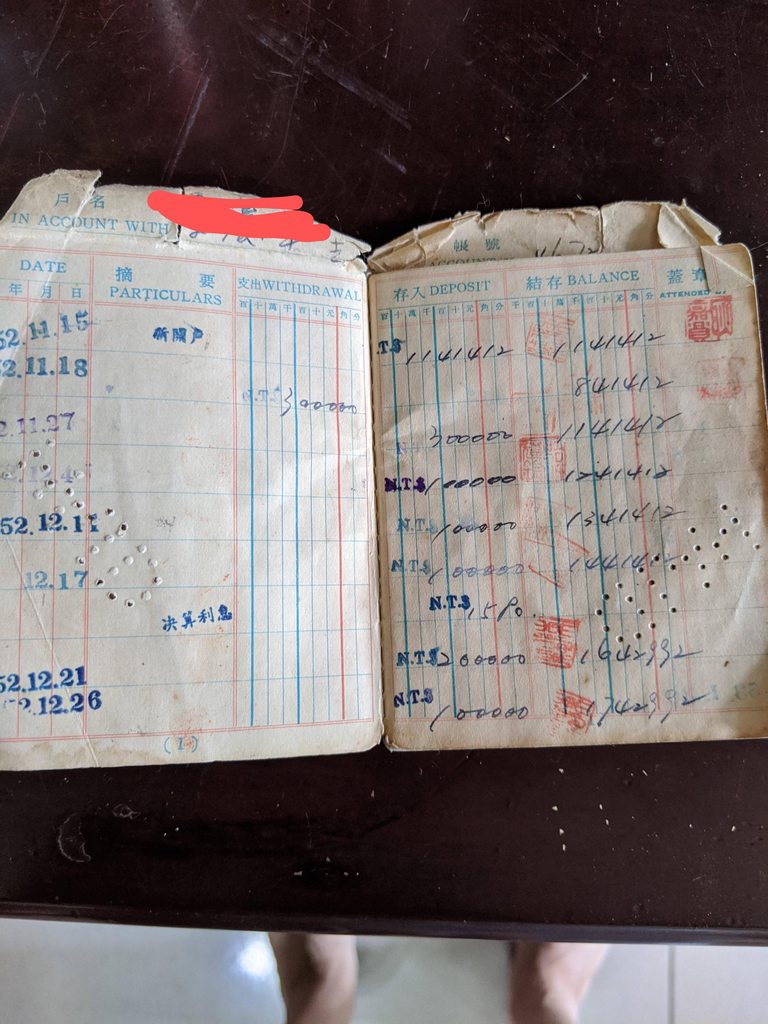 戶名
IN ACCOUNT WITH
DATE 摘要 支出WITHDRAWAL
年 月 日 PARTICULARS 百 十 萬 千 百 十 元 角 分
52.11.15 新開戶
2.11.18
N.T.$ 300000
2.11.27
52.12.11
12.17
決算利息
52.12.21
52.12.26
(1)
帳號
ACCOUNT
存入 DEPOSIT 結存 BALANCE 蓋章
百 十 萬 千 百 十 元 角 分 千 百 十 萬 千 百 十 元 角 分 ATTENDED BY
.T.$ 1141412 1141412
841412
300000 1141412
N.T.$ 100000 1241412
N.T.$ 100000 1341412
N.T.$ 100000 1441412
N.T.$ 1580
N.T.$ 200000 1642992
N.T.$ 100000 1742992